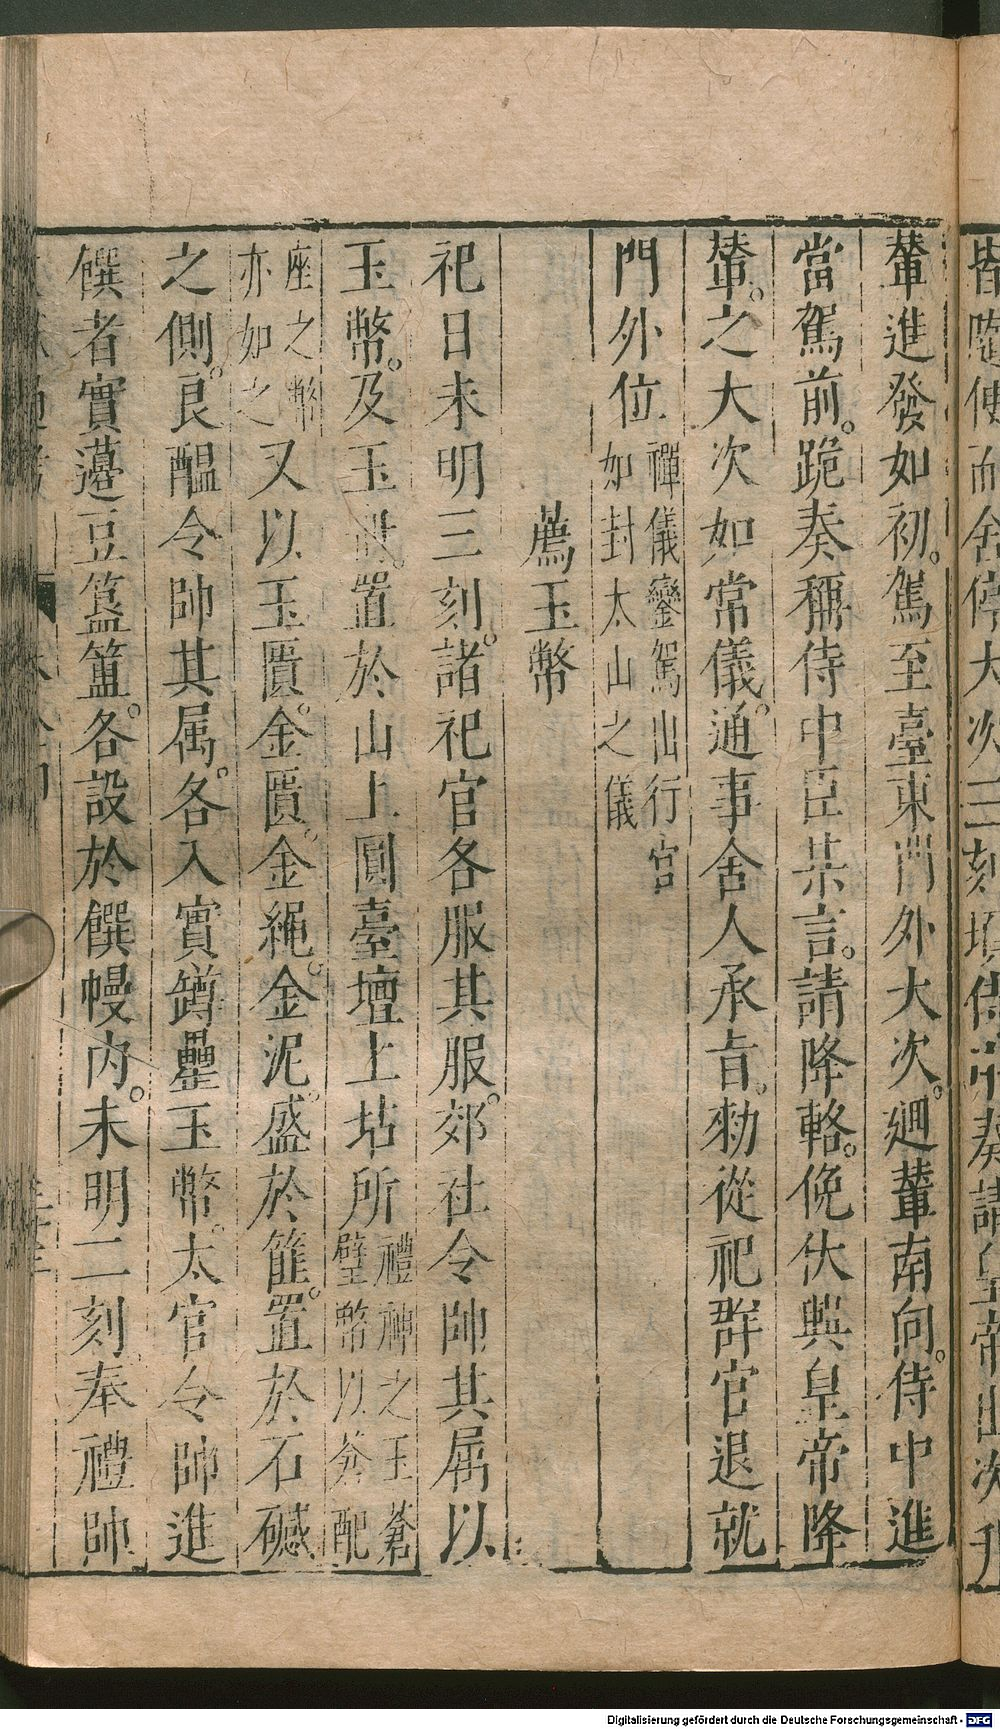 皆隨使而舍停大次三刻頃侍中奏請皇帝出次升
輦進發如初。駕至臺東門外大次。廻輦南向。侍中進
當駕前。跪奏稱侍中臣某言。請降輅。俛伏興皇帝降
輦。之大次如常儀。通事舍人承旨。勑從祀群官退就
門外位禪儀鑾駕出行宫如封太山之儀
薦玉幣
祀日未明三刻。諸祀官各服其服。郊社令帥其属以
玉幣。及玉冊。置於山上圓臺壇上坫所禮神之玉蒼璧幣以蒼配
座之幣亦如之又以玉匱。金匱。金繩。金泥。盛於篚。置於石䃭
之側。良醖令帥其属。各入實罇罍玉幣。太官令帥進
饌者實籩豆簋簠。各設於饌幔内。未明二刻奉禮帥
Digitalisierung gefördert durch die Deutsche Forschungsgemeinschaft - DFG